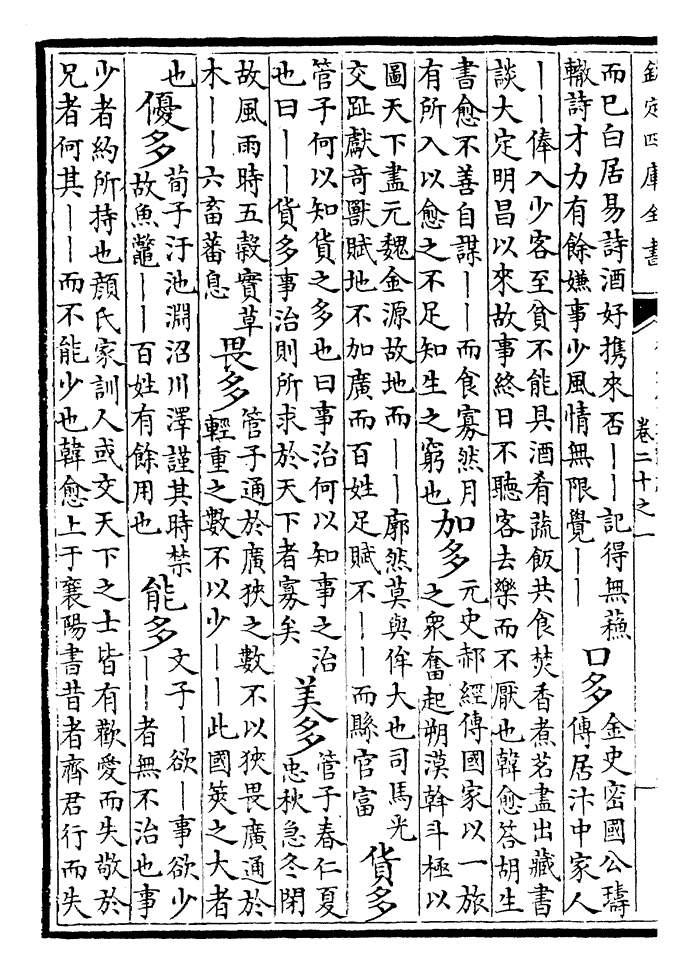 欽定四庫全書
卷二十之一
而已白居易詩酒好携來否丨丨記得無蘓
轍詩才力有餘嫌事少風情無限覺丨丨
口多
金史密國公璹
傳居汴中家人
丨丨俸入少客至貧不能具酒肴蔬飯共食焚香煮茗盡出藏書
談大定明昌以來故事終日不聽客去樂而不厭也韓愈答胡生
書愈不善自謀丨丨而食寡然月
有所入以愈之不足知生之窮也
加多
元史郝經傳國家以一旅
之衆奮起朔漠斡斗極以
圖天下盡元魏金源故地而丨丨廓然莫與侔大也司馬光
交趾獻奇獸賦地不加廣而百姓足賦不丨丨而縣官富
貨多
管子何以知貨之多也曰事治何以知事之治
也曰丨丨貨多事治則所求於天下者寡矣
美多
管子春仁夏
忠秋急冬閉
故風雨時五穀實草
木丨丨六畜蕃息
畏多
管子通於廣狹之數不以狹畏廣通於
輕重之數不以少丨丨此國筴之大者
也
優多
荀子汙池淵沼川澤謹其時禁
故魚鼈丨丨百姓有餘用也
能多
文子丨欲丨事欲少
丨丨者無不治也事
少者約所持也顔氏家訓人或交天下之士皆有歡愛而失敬於
兄者何其丨丨而不能少也韓愈上于襄陽書昔者齊君行而失